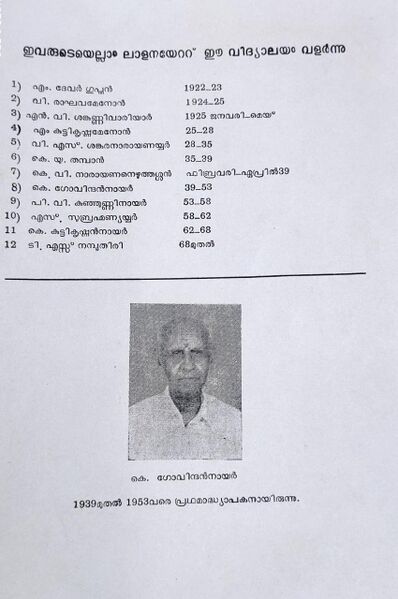 ഇവരുടെയെല്ലാം ലാളനയേററ് ഈ വിദ്യാലയം വളർന്നു
1) എം. ദേവർ ഗുപ്തൻ 1922-23
2) വി. രാഘവമേനോൻ 1924-25
3) എൻ. വി. ശങ്കുണ്ണിവാരിയാർ 1925 ജനവരി-മെയ്
4) എം കുട്ടികൃഷ്ണമേനോൻ 25-28
5) വി. എസ്. ശങ്കരനാരായണയ്യർ 28-35
6) കെ. യു. തമ്പാൻ 35-39
7) കെ. വി. നാരായണനെഴുത്തശ്ശൻ ഫിബ്രവരി-ഏപ്രിൽ39
8) കെ. ഗോവിന്ദൻനായർ 39-53
9) പി. വി. കുഞ്ഞുണ്ണിനായർ 53-58
10) എസ്. സുബ്രഹ്മണ്യയ്യർ 58-62
11 കെ. കുട്ടികൃഷ്ണൻനായർ 62-68
12 ടി. എസ്സ് നമ്പൂതിരി 68മുതൽ
കെ. ഗോവിന്ദൻനായർ
1939മുതൽ 1953വരെ പ്രഥമാദ്ധ്യാപകനായിരുന്നു.